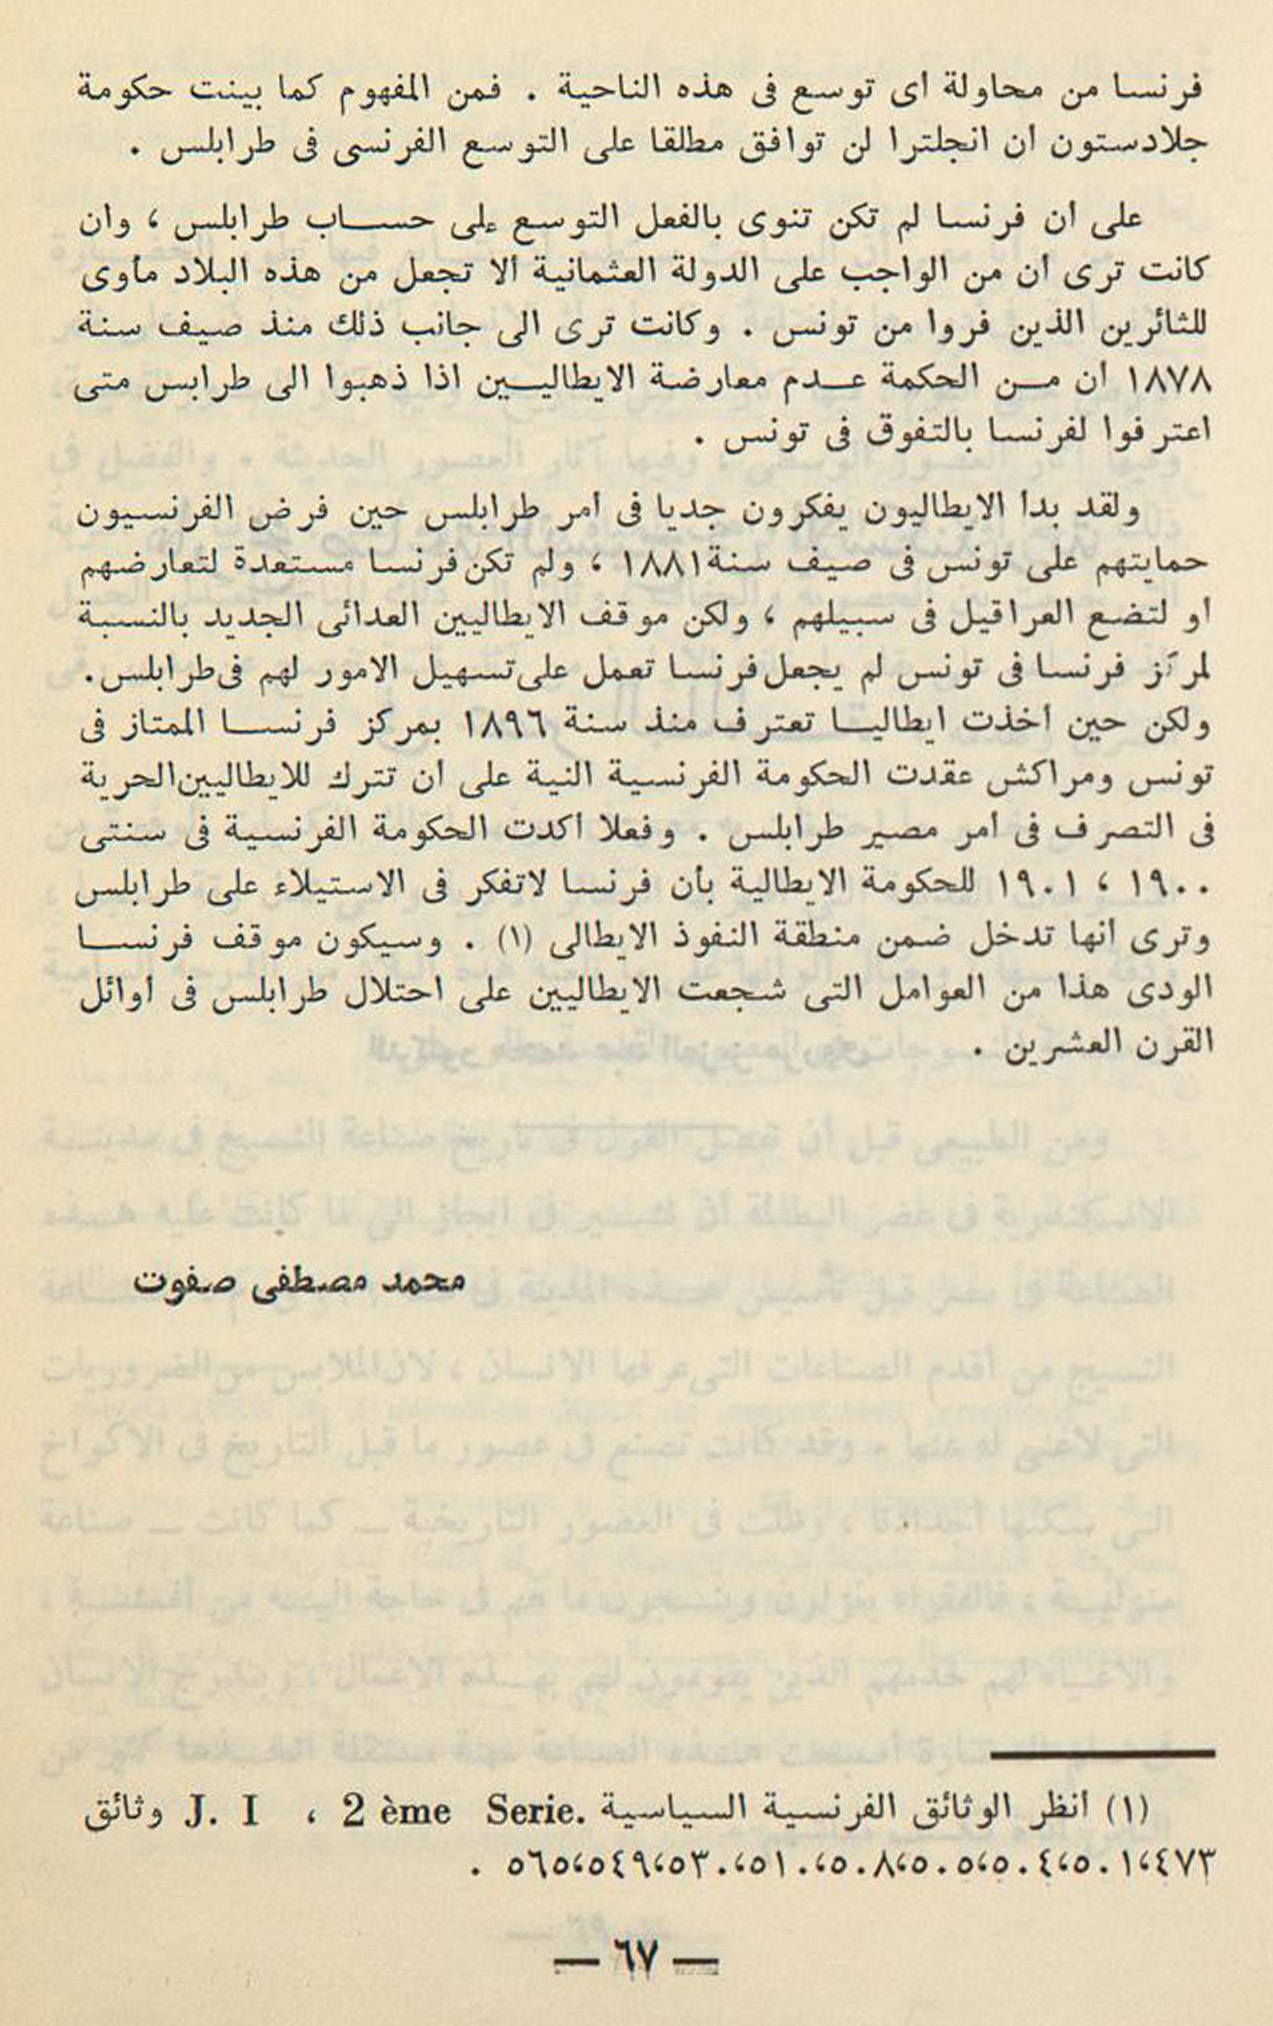 فرنسا من محاولة أى توسع فى هذه الناحية . فمن المفهوم كما بينت حكومة
جلادستون أن انجلترا لن توافق مطلقا على التوسع الفرنسى فى طرابلس .
على أن فرنسا لم تكن تنوى بالفعل التوسع على حساب طرابلس ، وان
كانت ترى أن من الواجب على الدولة العثمانية ألا تجعل من هذه البلاد مأوى
للثائرين الذين فروا من تونس . وكانت ترى الى جانب ذلك منذ صيف سنة
١٨٧٨ أن من الحكمة عدم معارضة الايطاليين اذا ذهبوا الى طرابس متى
اعترفوا لفرنسا بالتفوق فى تونس .
ولقد بدأ الايطاليون يفكرون جديا فى أمر طرابلس حين فرض الفرنسيون
حمايتهم على تونس فى صيف سنة ١٨٨١ ، ولم تكن فرنسا مستعدة لتعارضهم
أو لتضع العراقيل فى سبيلهم ، ولكن موقف الايطاليين العدائى الجديد بالنسبة
لمركز فرنسا فى تونس لم يجعل فرنسا تعمل على تسهيل الامور لهم فى طرابلس.
ولكن حين أخذت ايطاليا تعترف منذ سنة ١٨٩٦ بمركز فرنسا الممتاز فى
تونس ومراكش عقدت الحكومة الفرنسية النية على أن تترك للايطاليين الحرية
فى التصرف فى أمر مصير طرابلس . وفعلا أكدت الحكومة الفرنسية فى سنتى
١٩٠٠ ، ١٩٠١ للحكومة الايطالية بأن فرنسا لاتفكر فى الاستيلاء على طرابلس
وترى أنها تدخل ضمن منطقة النفوذ الايطالى (١) . وسيكون موقف فرنسا
الودى هذا من العوامل التى شجعت الايطاليين على احتلال طرابلس فى أوائل
القرن العشرين .
محمد مصطفى صفوت
(١) أنظر الوثائق الفرنسية السياسية J. I ، 2 ème Serie. وثائق
٤٧٣،٥٠١،٥٠٤،٥٠٥،٥٠٨،٥١٠،٥٣٠،٥٤٩،٥٦٥ .
— ٦٧ —